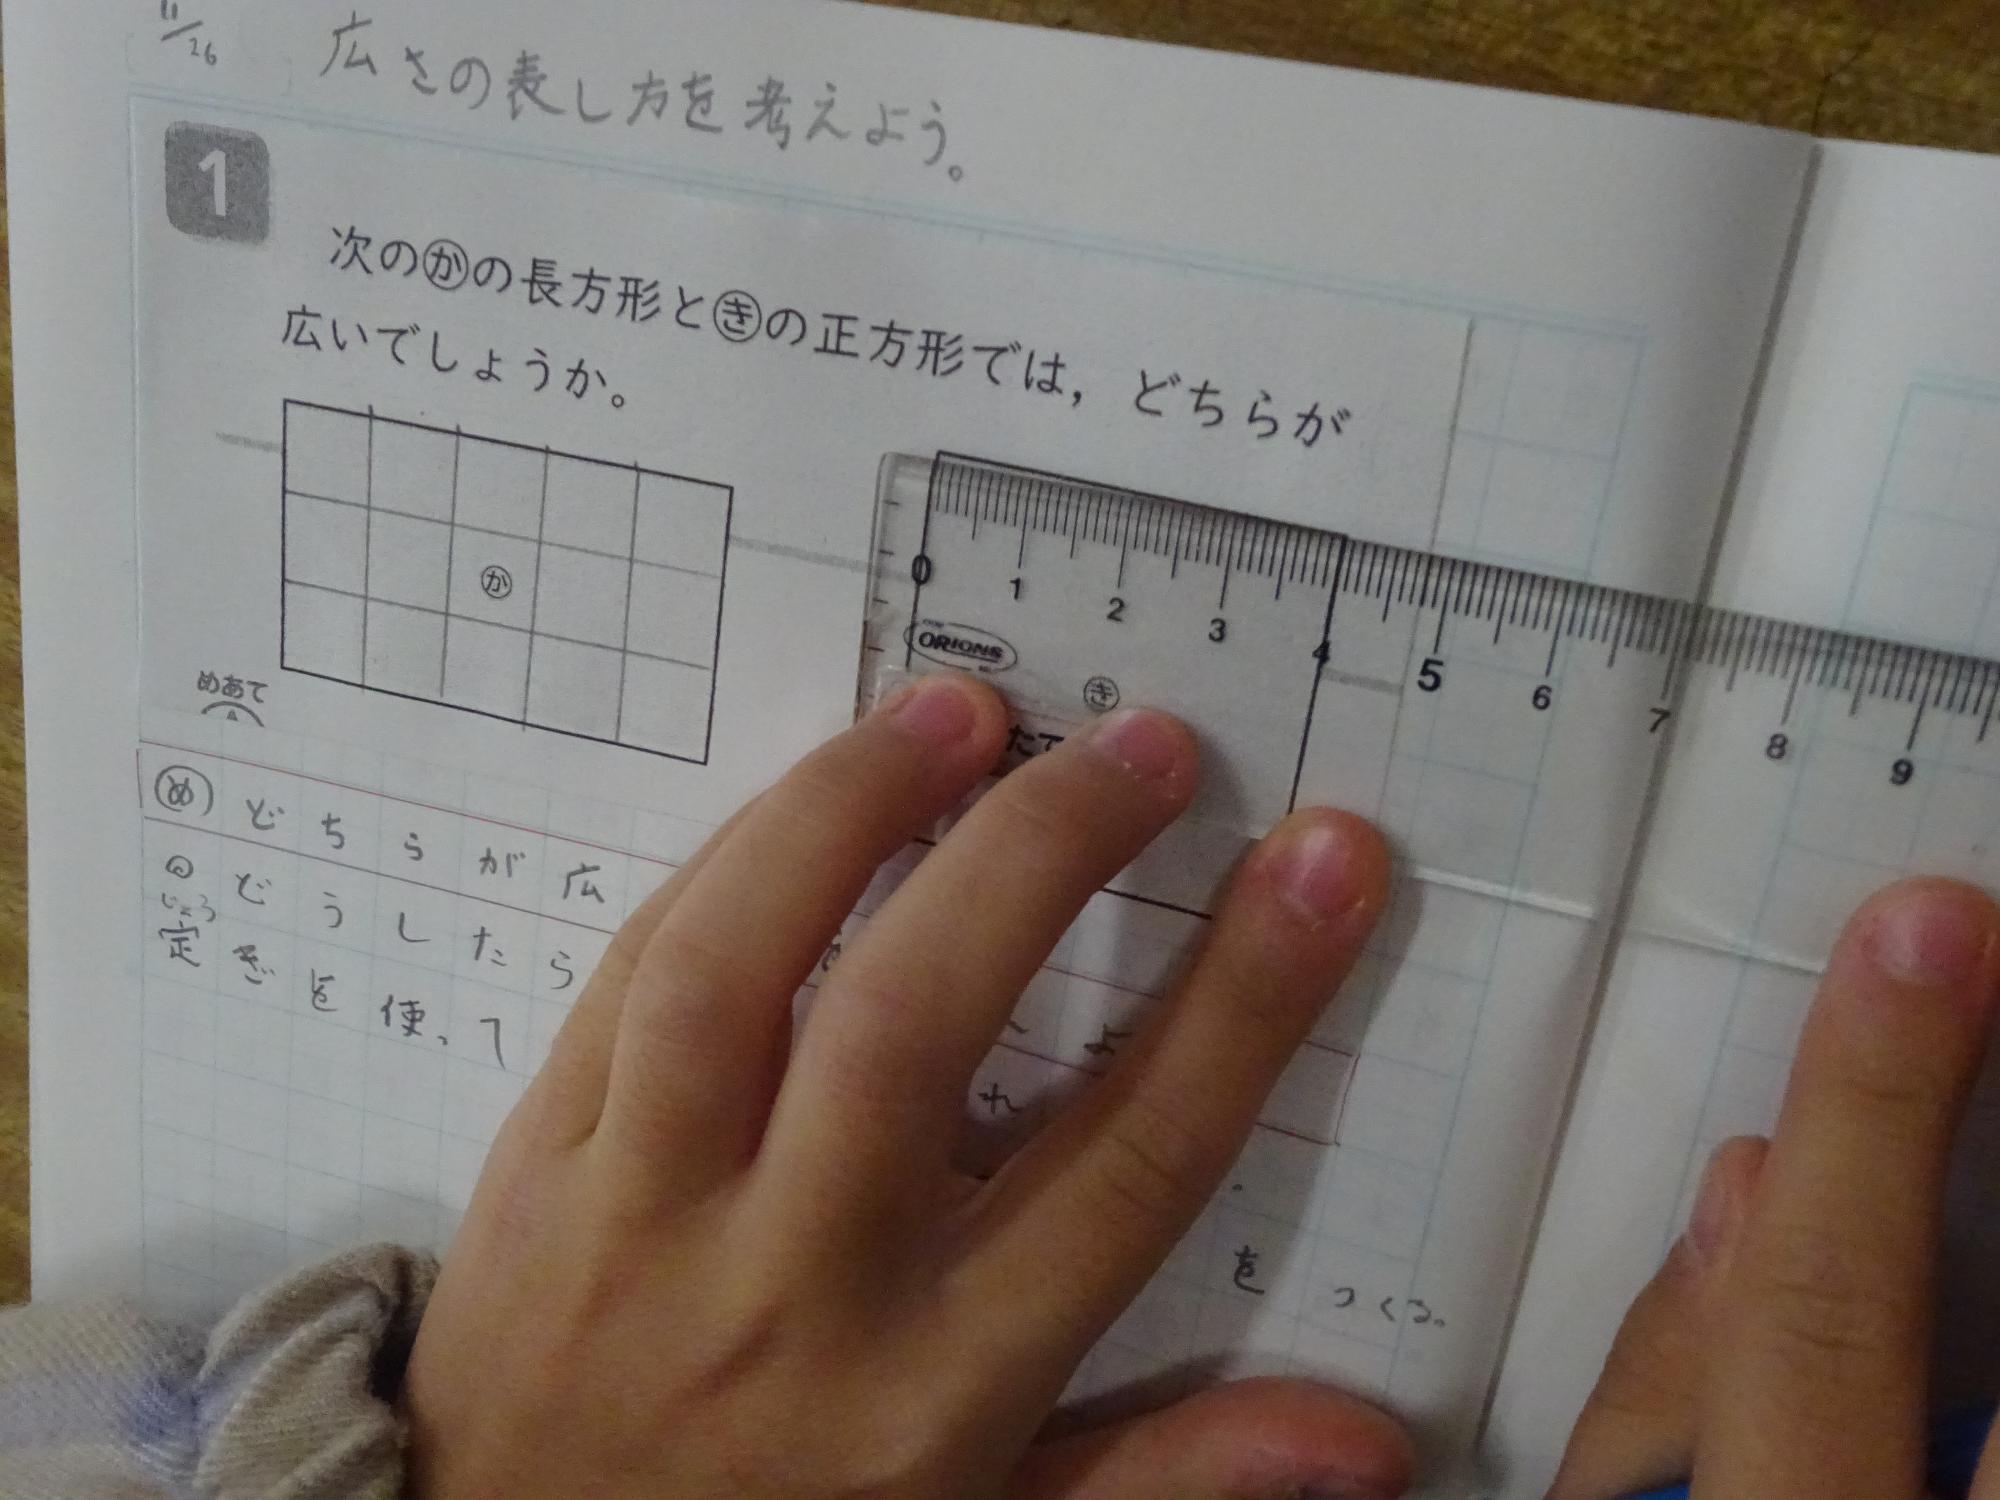 11/26
広さの表し方を考えよう。
1
次のかの長方形ときの正方形では，どちらが
広いでしょうか。
か
0 1 2 3 4 5 6 7 8 9
ORIONS
き
たて
めあて
め どちらが広
のどうしたら
じょう
定ぎを使って
れ
をつくる。